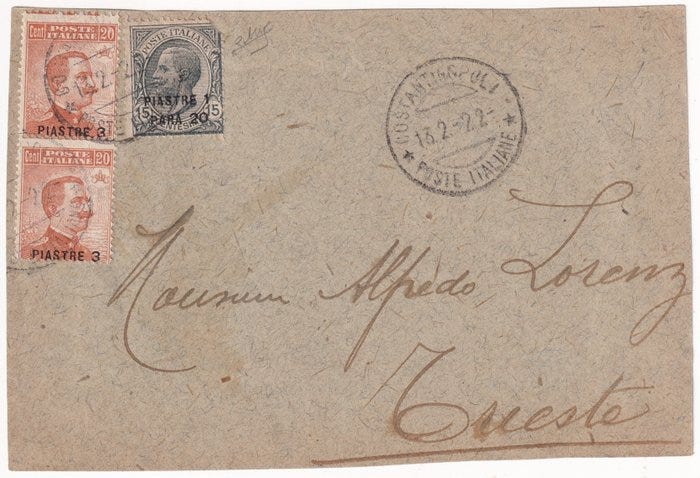 Cent POSTE ITALIANE 20
PIASTRE 3
POSTE ITALIANE
PIASTRE 1
PARA 20
15 15
Cent POSTE ITALIANE 20
PIASTRE 3
COSTANTINOPOLI
13.2.22
* POSTE ITALIANE *
Monsieur Alfredo Lorenz
Trieste